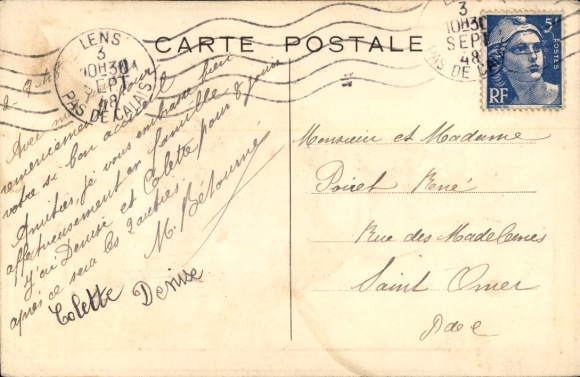 CARTE POSTALE
LENS
3
10H30
SEPT
48
PAS DE CALAIS
LENS
3
10H30
SEPT
48
PAS DE CALAIS
5F
POSTES
RF
2-9-48
Avec mes
remerciements pour
votre si bon accueil
Amitiés, je vous embrasse bien
affectueusement en famille
J'ai Denise et Colette pour 8 jours
après ce sera les 2 autres.
M. Bétourné
Colette Denise
Monsieur et Madame
Poiret René
Rue des Madeleines
Saint Omer
Pdec